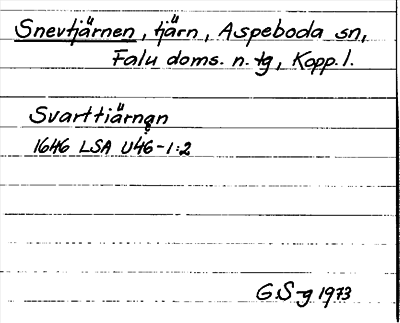 Snevtjärnen, tjärn, Aspeboda sn,
Falu doms. n. tg, Kopp. l.
Svarttiärnan
1646 LSA U46-1:2
G.S-g 1973